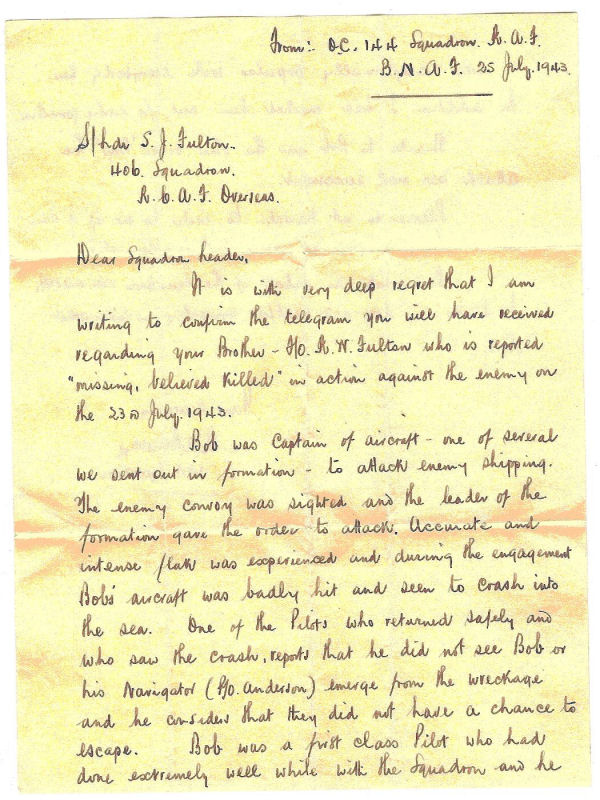 From:- O.C. 144 Squadron. R.A.F.
B.N.A.F. 25 July. 1943.
S/Ldr S. J. Fulton.
406. Squadron.
R.C.A.F. Overseas.
Dear Squadron Leader,
It is with very deep regret that I am
writing to confirm the telegram you will have received
regarding your Brother - F/O. R.W. Fulton who is reported
"missing, believed killed" in action against the enemy on
the 23rd July. 1943.
Bob was Captain of aircraft - one of several
we sent out in formation - to attack enemy shipping.
The enemy convoy was sighted and the leader of the
formation gave the order to attack. Accurate and
intense flak was experienced and during the engagement
Bob's aircraft was badly hit and seen to crash into
the sea. One of the Pilots who returned safely and
who saw the crash, reports that he did not see Bob or
his Navigator (P/O. Anderson) emerge from the wreckage
and he considers that they did not have a chance to
escape. Bob was a first class Pilot who had
done extremely well while with the Squadron and he